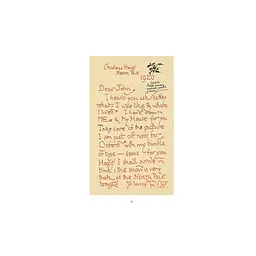 Christmas House
North Pole
1920
Dear John
I heard you ask daddy
what I was like & where
I lived. I have drawn
ME & My House for you
Take care of the picture
I am just off now for
Oxford with my bundle
of toys – some for you
Hope I shall arrive in
time: the snow is very
thick at the NORTH POLE
tonight